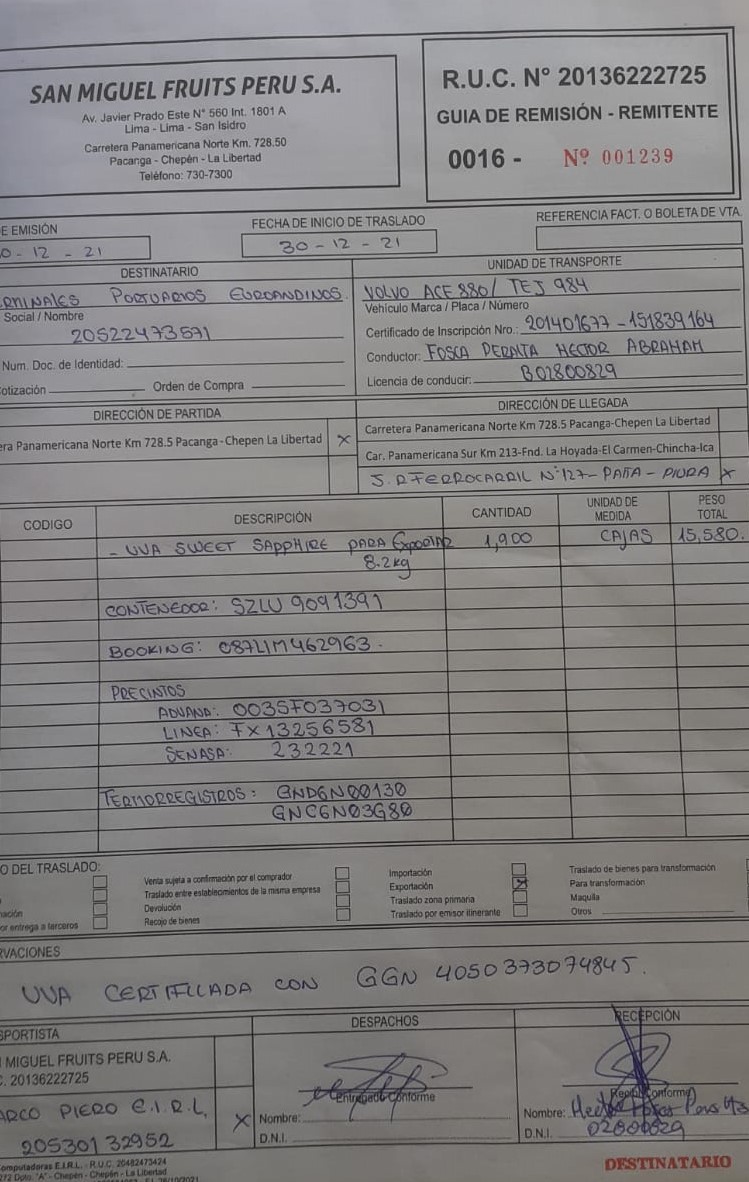 SAN MIGUEL FRUITS PERU S.A.
Av. Javier Prado Este N° 560 Int. 1801 A
Lima - Lima - San Isidro
Carretera Panamericana Norte Km. 728.50
Pacanga - Chepén - La Libertad
Teléfono: 730-7300
R.U.C. N° 20136222725
GUIA DE REMISIÓN - REMITENTE
0016 - Nº 001239
E EMISIÓN
0 - 12 - 21
FECHA DE INICIO DE TRASLADO
30 - 12 - 21
REFERENCIA FACT. O BOLETA DE VTA.
DESTINATARIO
RMINALES PORTUARIOS EUROANDINOS.
Social / Nombre
20522473571
Num. Doc. de Identidad:
otización Orden de Compra
UNIDAD DE TRANSPORTE
VOLVO ACE 880/ TEJ 984
Vehículo Marca / Placa / Número
Certificado de Inscripción Nro.: 201401677 - 151839164
Conductor: FOSCA PERALTA HECTOR ABRAHAM
Licencia de conducir: B02800829
DIRECCIÓN DE PARTIDA
era Panamericana Norte Km 728.5 Pacanga-Chepen La Libertad X
DIRECCIÓN DE LLEGADA
Carretera Panamericana Norte Km 728.5 Pacanga-Chepen La Libertad
Car. Panamericana Sur Km 213-Fnd. La Hoyada-El Carmen-Chincha-Ica
J. R FERROCARRIL N°127 - PAITA - PIURA X
CODIGO DESCRIPCIÓN CANTIDAD UNIDAD DE MEDIDA PESO TOTAL
- UVA SWEET SAPPHIRE PARA Exportar 1,900 CAJAS 15,580.
8.2kg
CONTENEDOR: SZLU 9091391
BOOKING: 087LIM462963.
PRECINTOS
ADUANA: 0035F037031
LINEA: FX13256581
SENASA: 232221
TERMORREGISTROS: GND6N00130
GNCGN03G80
O DEL TRASLADO:
mación
or entrega a terceros
Venta sujeta a confirmación por el comprador
Traslado entre establecimientos de la misma empresa
Devolución
Recojo de bienes
Importación
Exportación X
Traslado zona primaria
Traslado por emisor itinerante
Traslado de bienes para transformación
Para transformación
Maquila
Otros
RVACIONES
UVA CERTIFICADA CON GGN 4050373074845.
SPORTISTA
MIGUEL FRUITS PERU S.A.
C. 20136222725
ARCO PIERO E.I.R.L. X
20530132952
DESPACHOS
Entregado Conforme
Nombre:
D.N.I.
RECEPCIÓN
Recibí Conforme
Nombre: Hector
D.N.I. 02800829
omputadoras E.I.R.L. - R.U.C. 20482473424
272 Dpto. "A" - Chepén - Chepén - La Libertad
DESTINATARIO